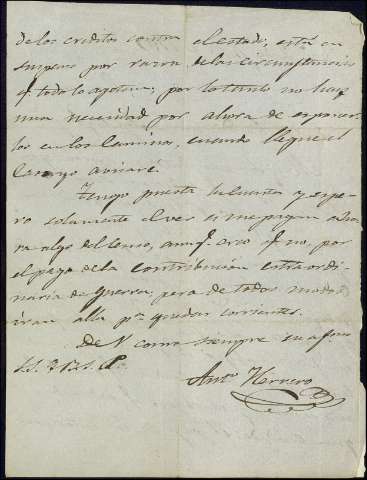 de los creditos contra el estado; está en
suspenso por razon de las circunstancias
q. todo lo agotan; por lo tanto no hay
una necesidad por ahora de esponer
los en los caminos, cuando llegue el
caso yo avisaré.
Tengo puesta la cuenta y espe
ro solamente el ver si me pagan ahora
algo del censo, aunq. creo q. no, por
el pago de la contribucion estraordi
naria de Guerra, pero de todos modos
iran alla pa. quedar corrientes.
De V. como siempre su afmo
S.S. Q.B.S.M.
Anto. Herrero